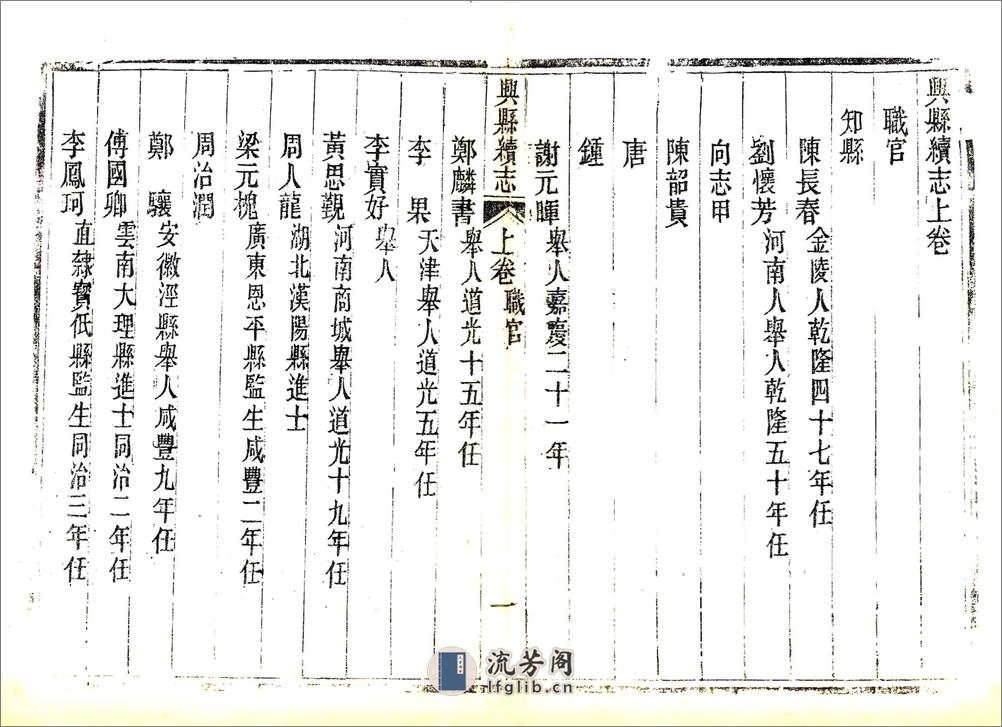 興縣續志上卷
職官
知縣
陳長春金陵人乾隆四十七年任
劉懷芳河南人舉人乾隆五十年任
向志甲
陳韶貴
唐
鍾
謝元暉舉人嘉慶二十一年
興縣續志 上卷 職官 一
鄭麟書舉人道光十五年任
李果天津舉人道光五年任
李實好舉人
黃思覲河南商城舉人道光十九年任
周人龍湖北漢陽縣進士
梁元槐廣東恩平縣監生咸豐二年任
周治潤
鄭驤安徽涇縣舉人咸豐九年任
傅國卿雲南大理縣進士同治二年任
李鳳珂直隸寳低縣監生同治三年任
流芳阁
lfglib.cn